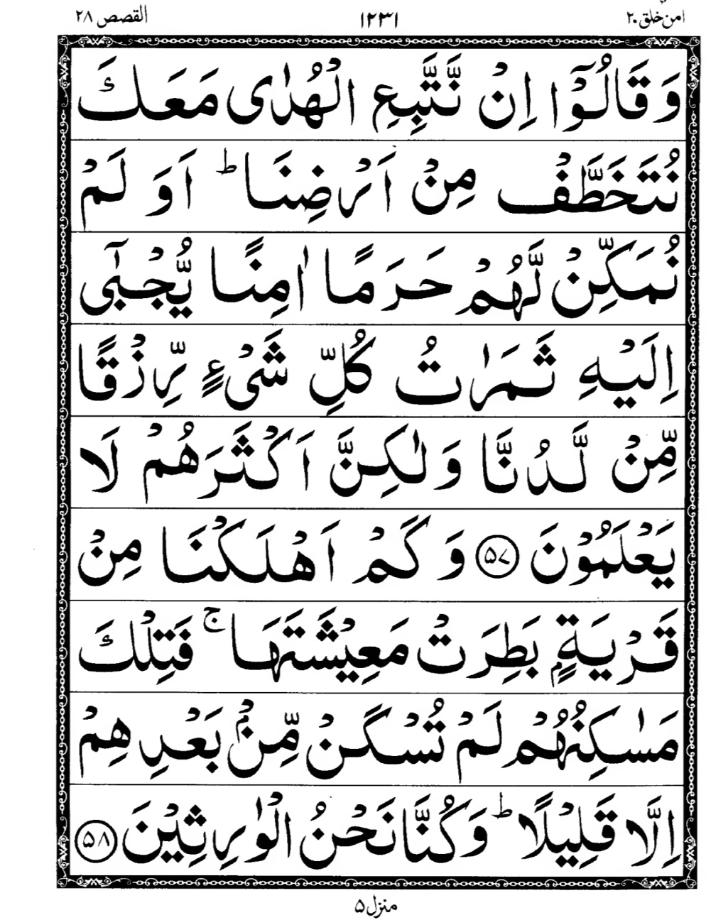 امن خلق ۲۰ ۱۲۳۱ القصص ۲۸
وَقَالُوْٓا اِنْ نَّتَّبِعِ الْهُدٰى مَعَكَ
نُتَخَطَّفْ مِنْ اَرْضِنَا ؕ اَوَ لَمْ
نُمَكِّنْ لَّهُمْ حَرَمًا اٰمِنًا يُّجْبٰٓى
اِلَيْهِ ثَمَرٰتُ كُلِّ شَىْءٍ رِّزْقًا
مِّنْ لَّدُنَّا وَلٰكِنَّ اَكْثَرَهُمْ لَا
يَعْلَمُوْنَ ﴿۵۷﴾ وَكَمْ اَهْلَكْنَا مِنْ
قَرْيَةٍۭ بَطِرَتْ مَعِيْشَتَهَا ۚ فَتِلْكَ
مَسٰكِنُهُمْ لَمْ تُسْكَنْ مِّنْۢ بَعْدِهِمْ
اِلَّا قَلِيْلًا ؕ وَكُنَّا نَحْنُ الْوٰرِثِيْنَ ﴿۵۸﴾
منزل ۵